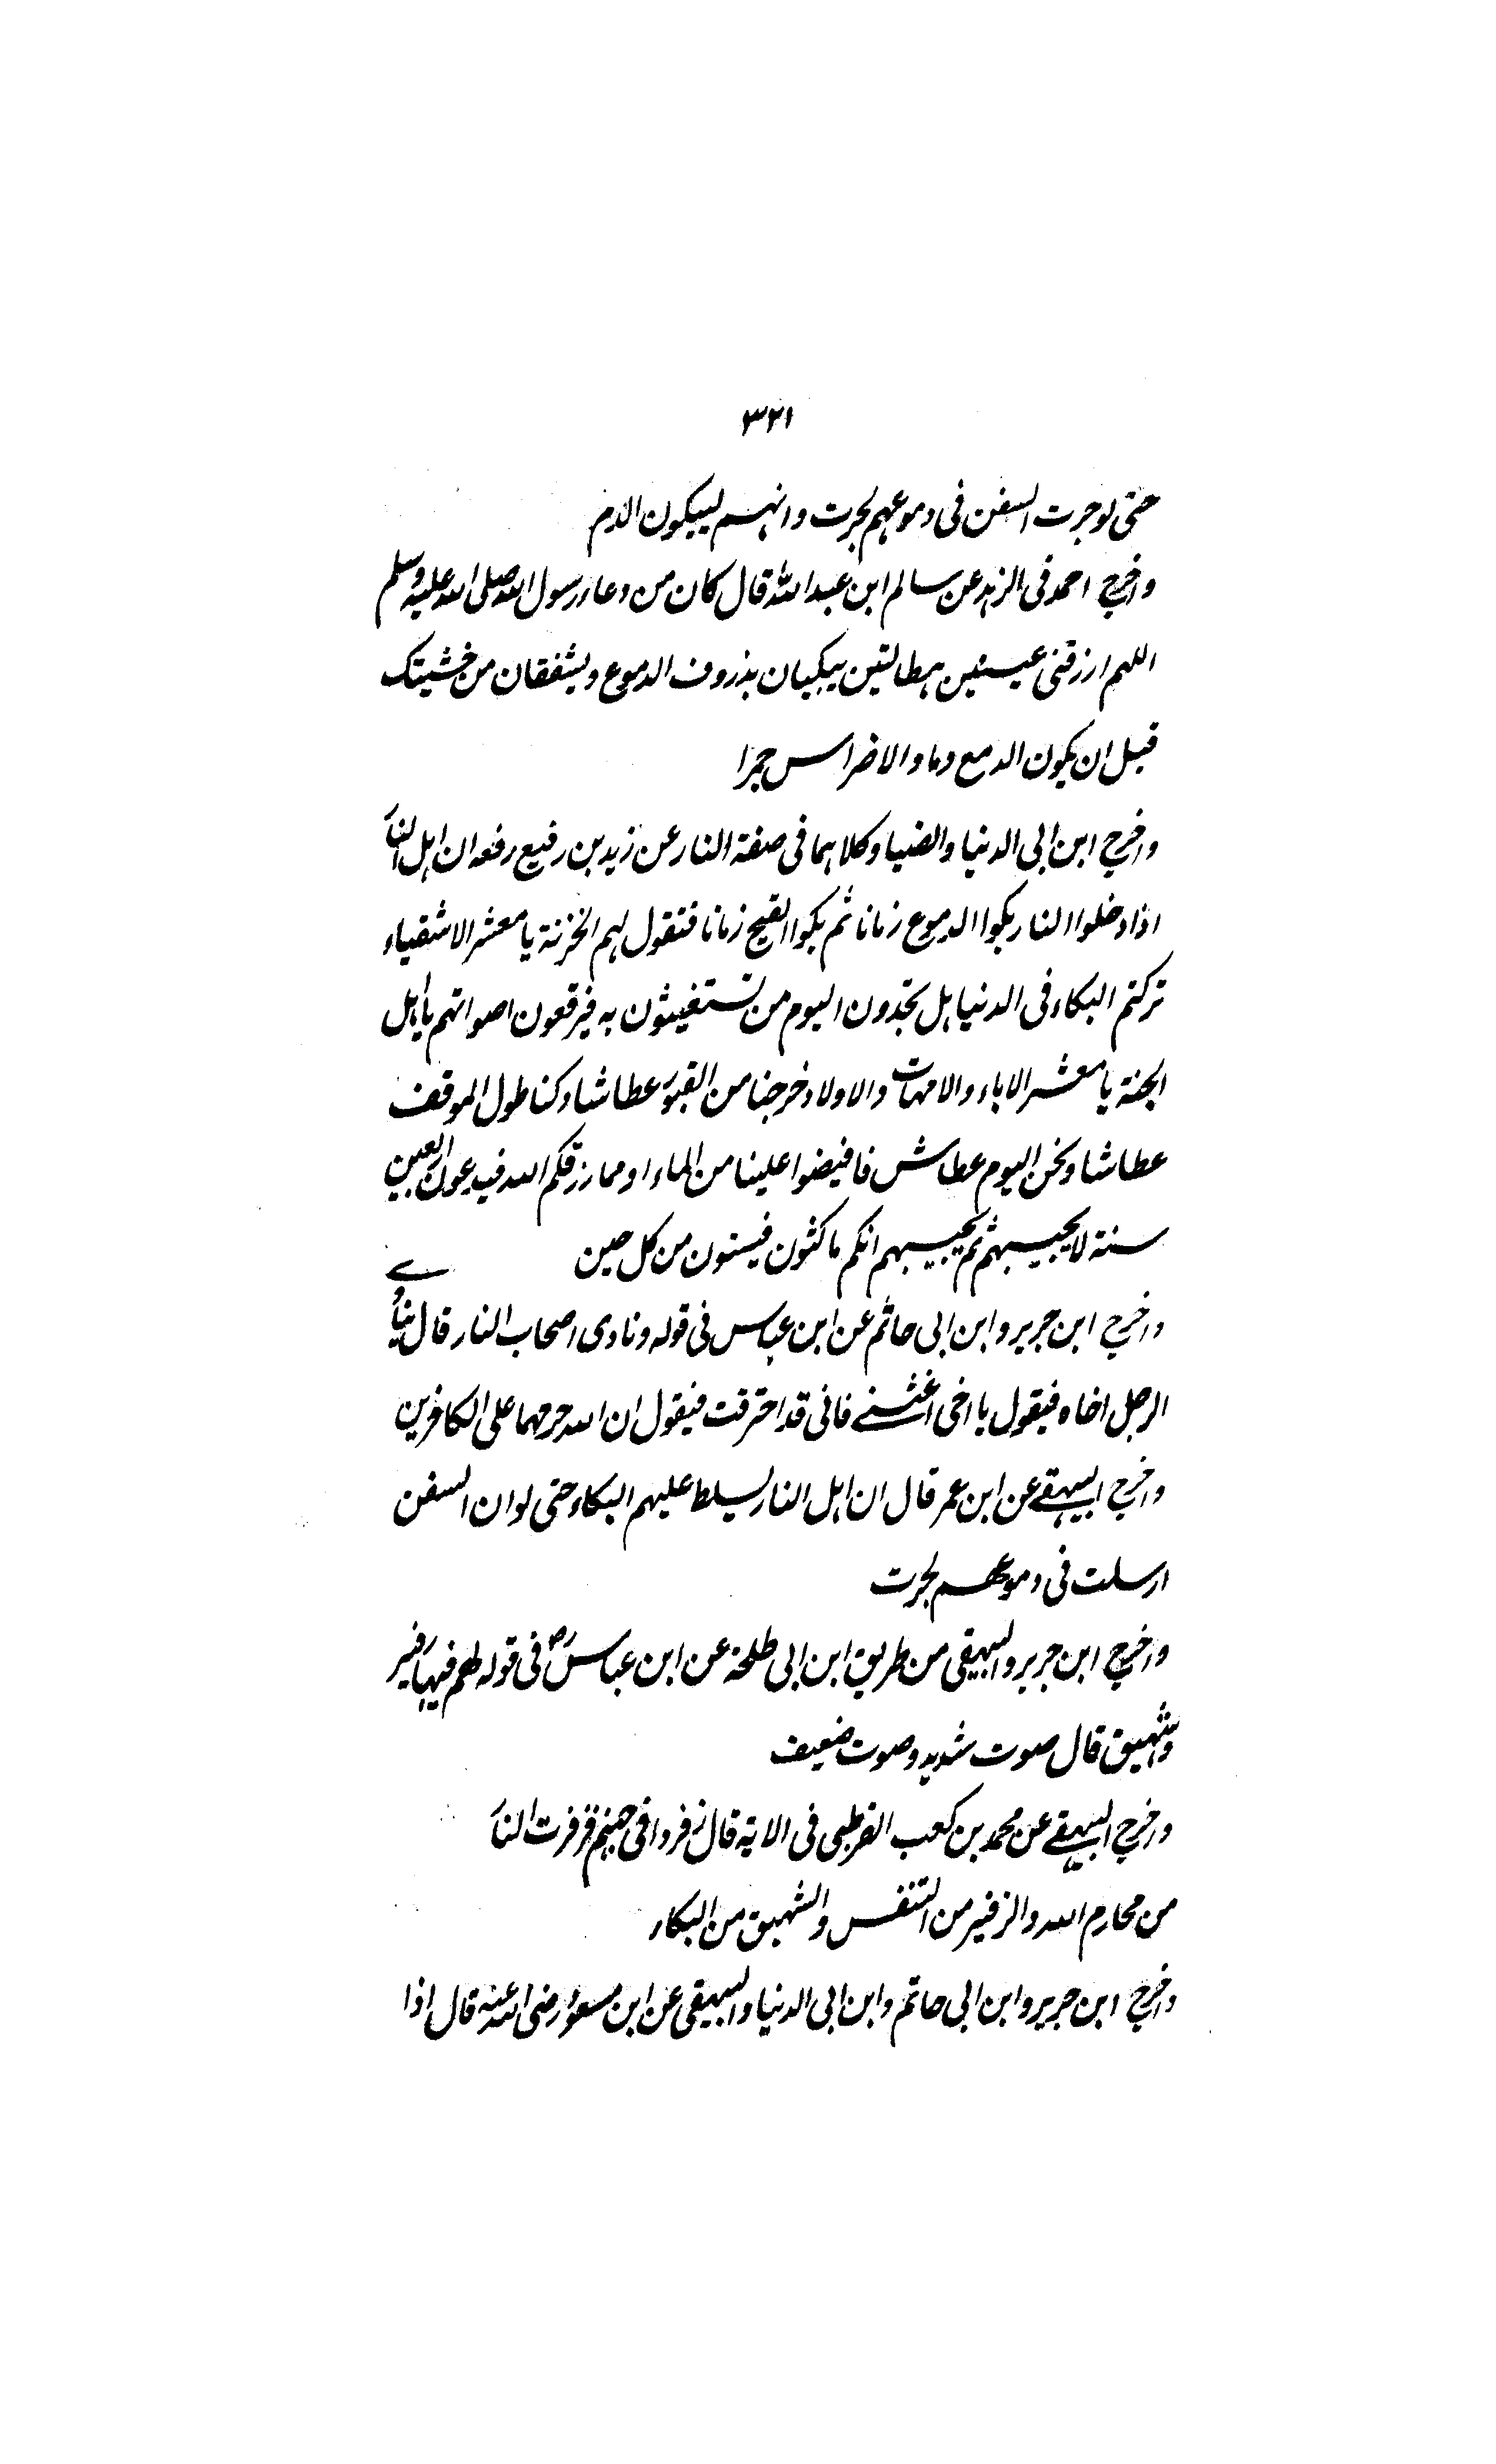 ٣٢١
حتى لوجرت السفن فى دموعهم لجرت وانهم ليبكون الدم
واخرج احمد فى الزهد عن سالم ابن عبد الله قال كان من دعاء رسول الله صلى الله عليه وسلم
اللهم ارزقنى عينين هطالتين يبكيان بذروف الدموع ويشفقان من خشيتك
قبل ان يكون الدمع دما والاضراس جمرا
واخرج ابن ابى الدنيا والضياء كلاهما فى صفة النار عن زيد بن رفيع رفعه ان اهل النار
اذا دخلوا النار بكوا الدموع زمانا ثم بكوا القيح زمانا فتقول لهم الخزنة يا معشر الاشقياء
تركتم البكاء فى الدنيا هل تجدون اليوم من تستغيثون به فيرفعون اصواتهم يا اهل
الجنة يا معشر الاباء والامهات والاولاد خرجنا من القبور عطاشا وكنا طول الموقف
عطاشا ونحن اليوم عطاش فافيضوا علينا من الماء او مما رزقكم الله فيدعون اربعين
سنة لا يجيبهم ثم يجيبهم انكم ماكثون فييسون من كل حين
واخرج ابن جرير وابن ابى حاتم عن ابن عباس فى قوله ونادى اصحاب النار قال ينادى
الرجل اخاه فيقول يا اخى اغثنے فانى قد احترقت فيقول ان الله حرمهما على الكافرين
واخرج البيهقے عن ابن عمر قال ان اهل النار يسلط عليهم البكاء حتى لو ان السفن
ارسلت فى دموعهم لجرت
واخرج ابن جرير والبيهقى من طريق ابن ابى طلحة عن ابن عباس رض فى قوله لهم فيها زفير
وشهيق قال صوت شديد وصوت ضعيف
واخرج البيهقے عن محمد بن كعب القرظى فى الاية قال زفروا فى جهنم فزفرت النار
من محارم الله والزفير من التنفس والشهيق من البكاء
واخرج ابن جرير وابن ابى حاتم وابن ابى الدنيا والبيهقى عن ابن مسعود رضى الله عنه قال اذا